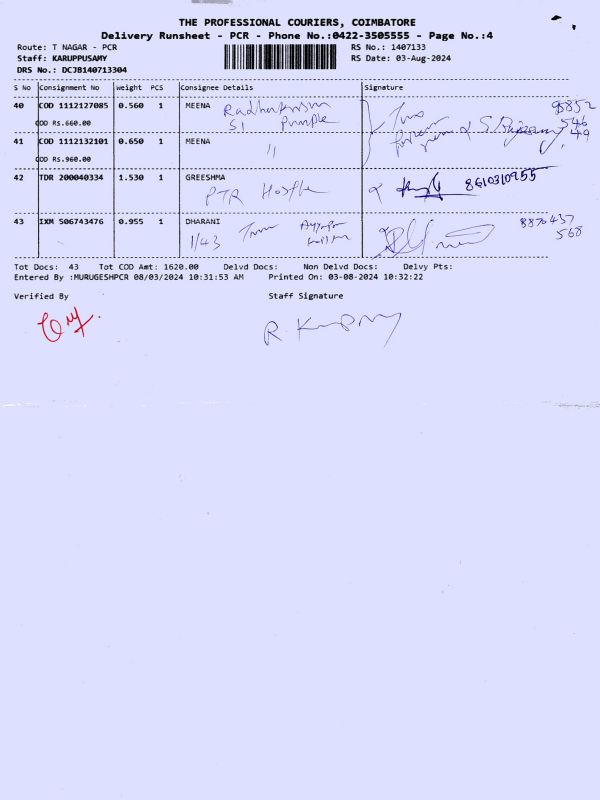 THE PROFESSIONAL COURIERS, COIMBATORE
Delivery Runsheet - PCR - Phone No.:0422-3505555 - Page No.:4
Route: T NAGAR - PCR RS No.: 1407133
Staff: KARUPPUSAMY RS Date: 03-Aug-2024
DRS No.: DCJB140713304
S No Consignment No Weight PCS Consignee Details Signature
40 COD 1112127085 0.560 1 MEENA
COD RS.660.00 51 Pumple
41 COD 1112132101 0.650 1 MEENA 11
COD RS.960.00
42 TDR 200040334 1.530 1 GREESHMA 8610310955
PTR Hostle
43 IXM 506743476 0.955 1 DHARANI 8870437
1/43 568
Tot Docs: 43 Tot COD Amt: 1620.00 Delvd Docs: Non Delvd Docs: Delvy Pts:
Entered By :MURUGESHPCR 08/03/2024 10:31:53 AM Printed On: 03-08-2024 10:32:22
Verified By Staff Signature